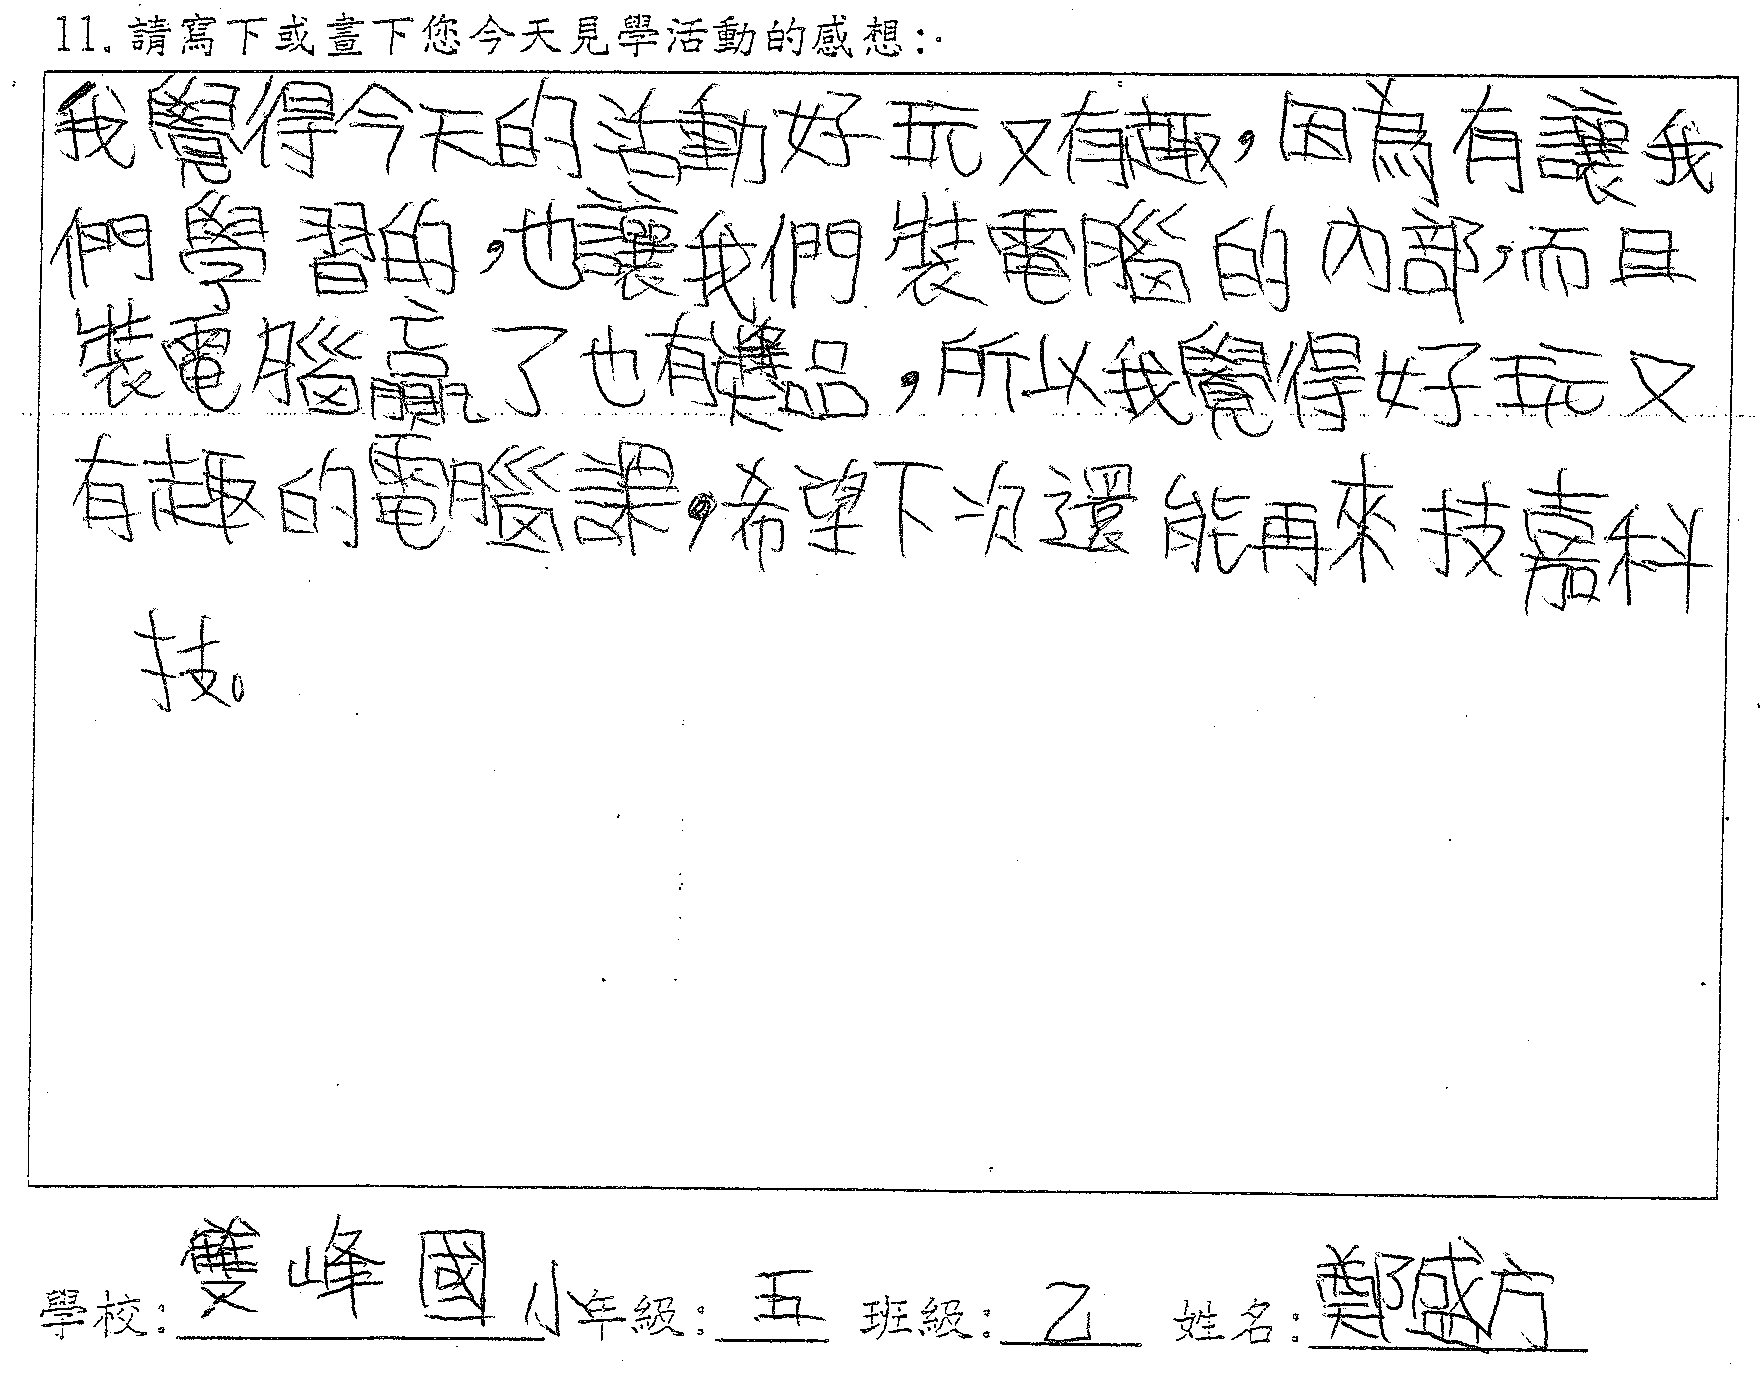 11.請寫下或畫下您今天見學活動的感想:
我覺得今天的活動好玩又有趣，因為有讓我
們學習的，也讓我們裝電腦的內部，而且
裝電腦贏了也有獎品，所以我覺得好玩又
有趣的電腦課，希望下次還能再來技嘉科
技。
學校:雙峰國小年級:五 班級:乙 姓名:鄭盛方